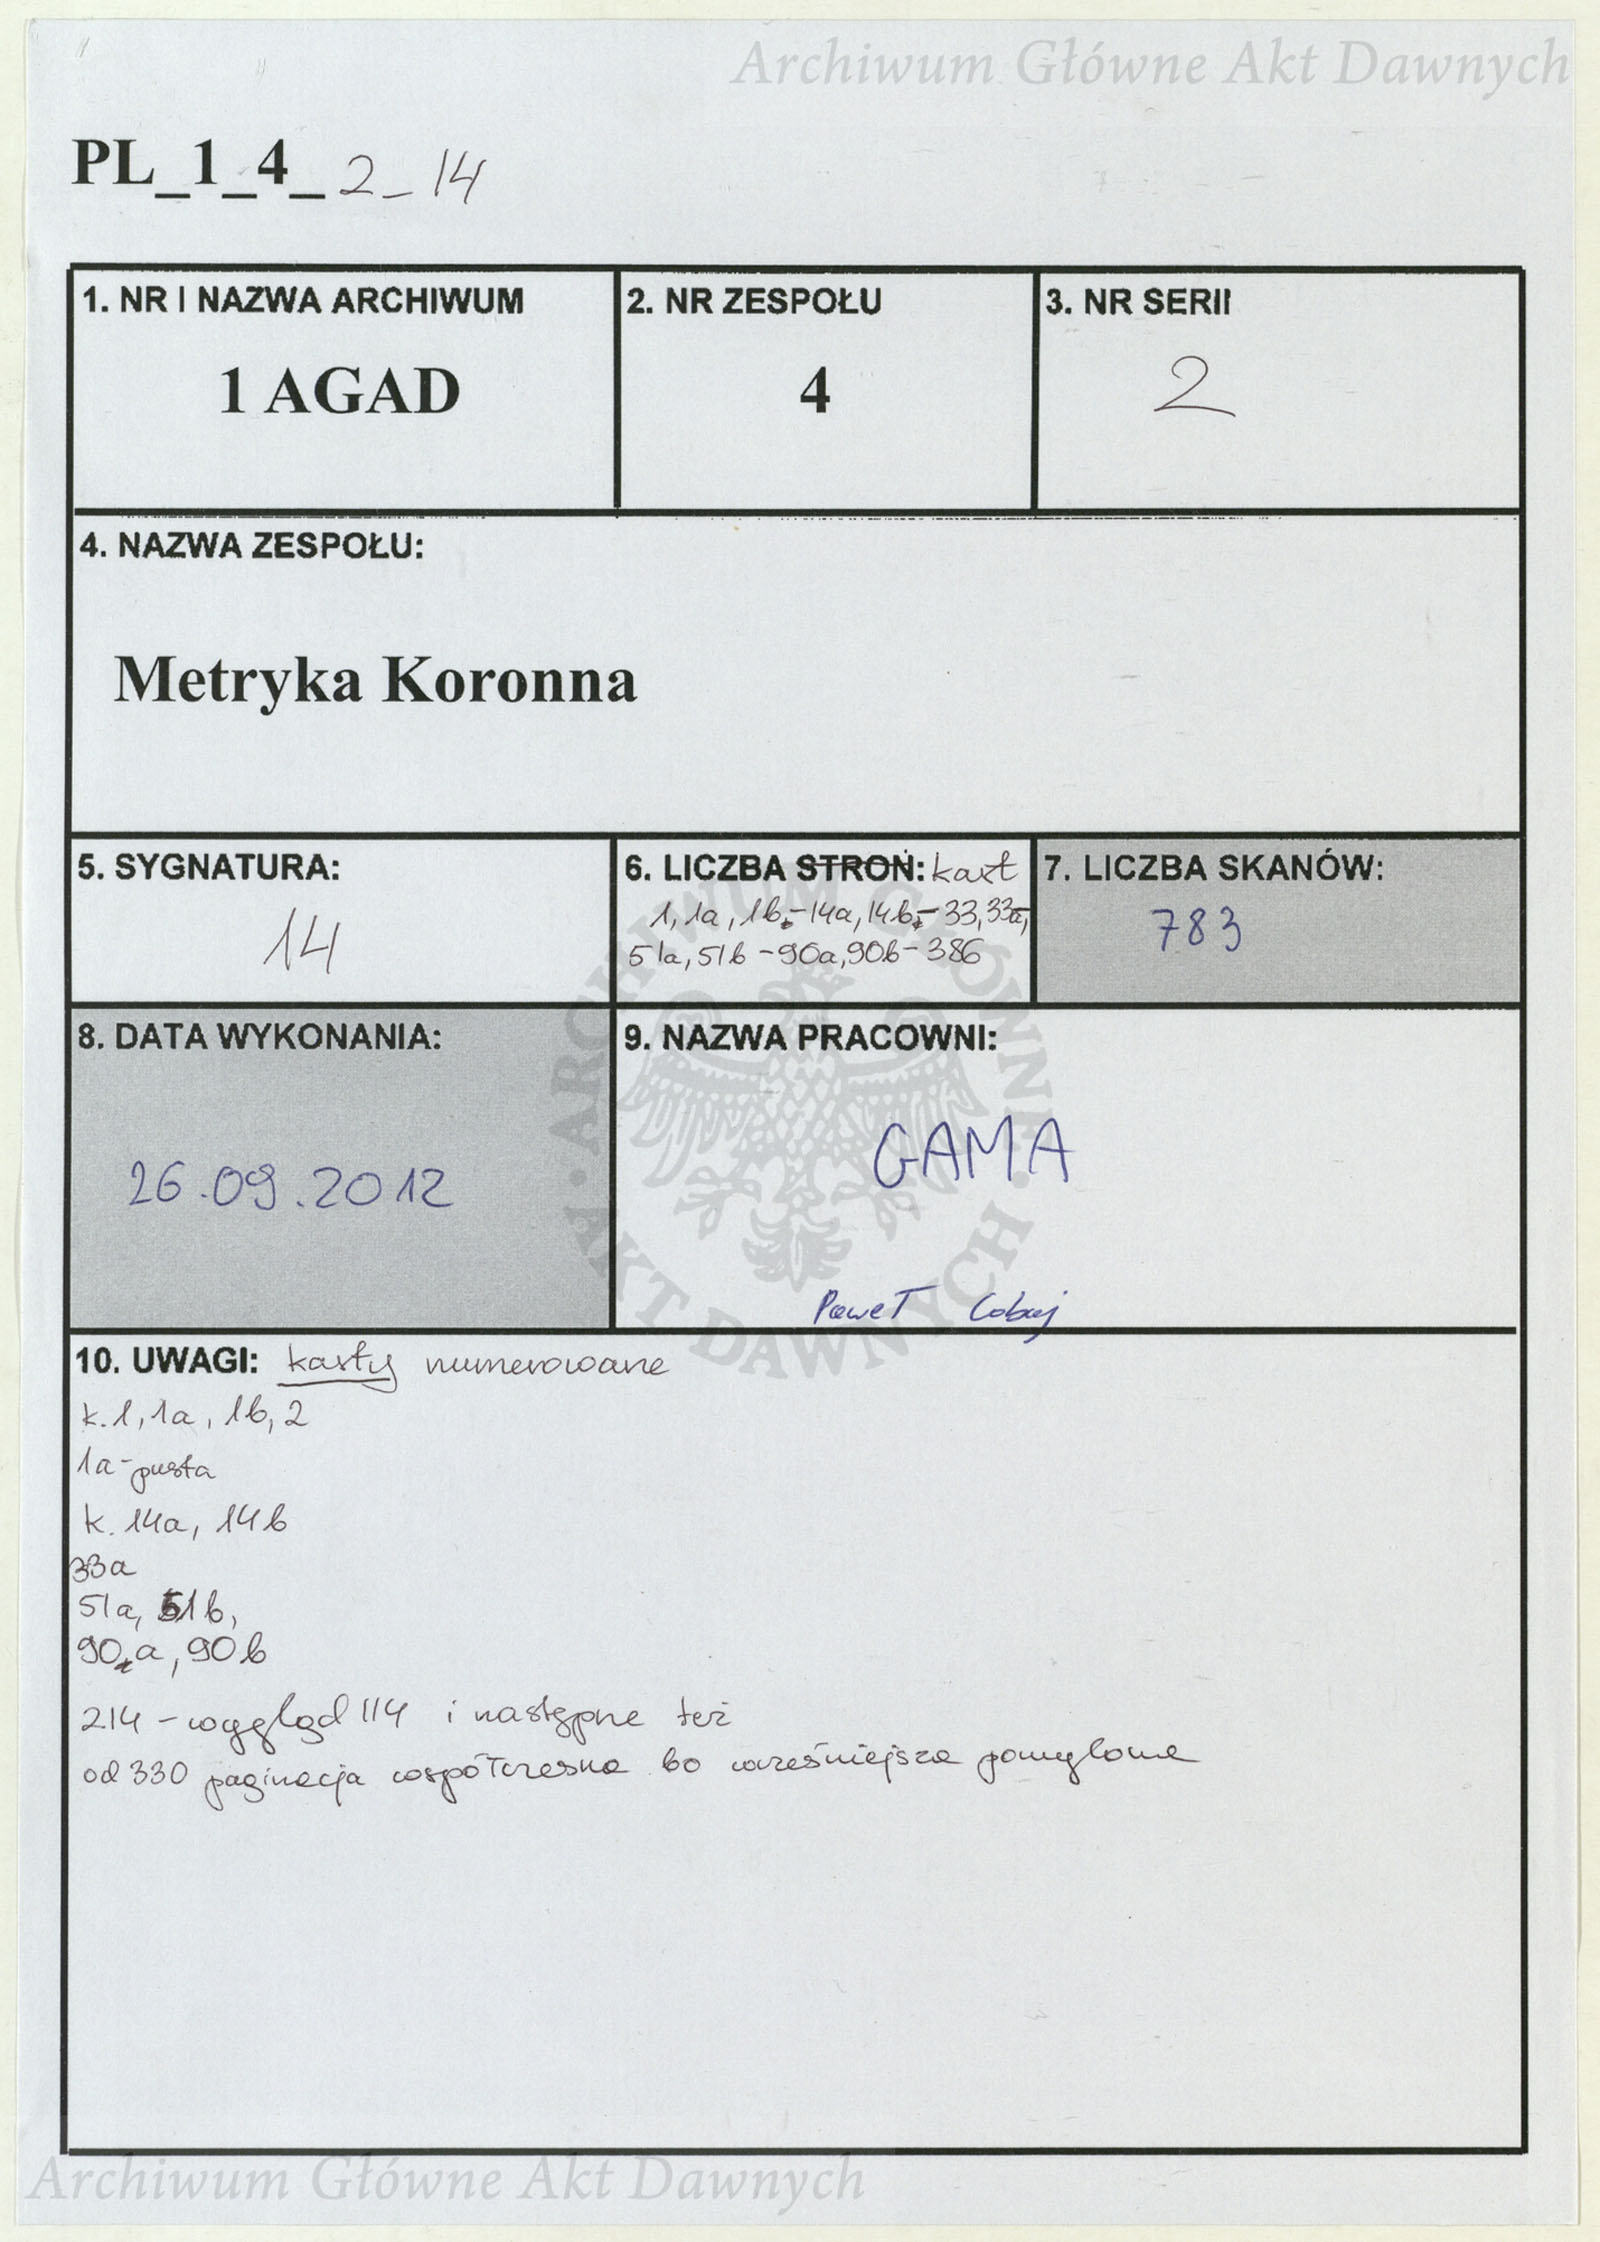 Archiwum Główne Akt Dawnych
PL_1_4_2_14
1. NR I NAZWA ARCHIWUM
1 AGAD
2. NR ZESPOŁU
4
3. NR SERII
2
4. NAZWA ZESPOŁU:
Metryka Koronna
5. SYGNATURA:
14
6. LICZBA STRON: kart
1, 1a, 1b-14a, 14b-33, 33a,
51a, 51b-90a, 90b-386
7. LICZBA SKANÓW:
783
8. DATA WYKONANIA:
26.09.2012
9. NAZWA PRACOWNI:
GAMA
Paweł
10. UWAGI: karty numerowane
k. 1, 1a, 1b, 2
1a-pusta
k. 14a, 14b
33a
51a, 51b,
90a, 90b
214-wygląd 114 i następne też
od 330 paginacja współczesna bo wcześniejsza pomylona
ARCHIWUM GŁÓWNE
AKT DAWNYCH
Archiwum Główne Akt Dawnych